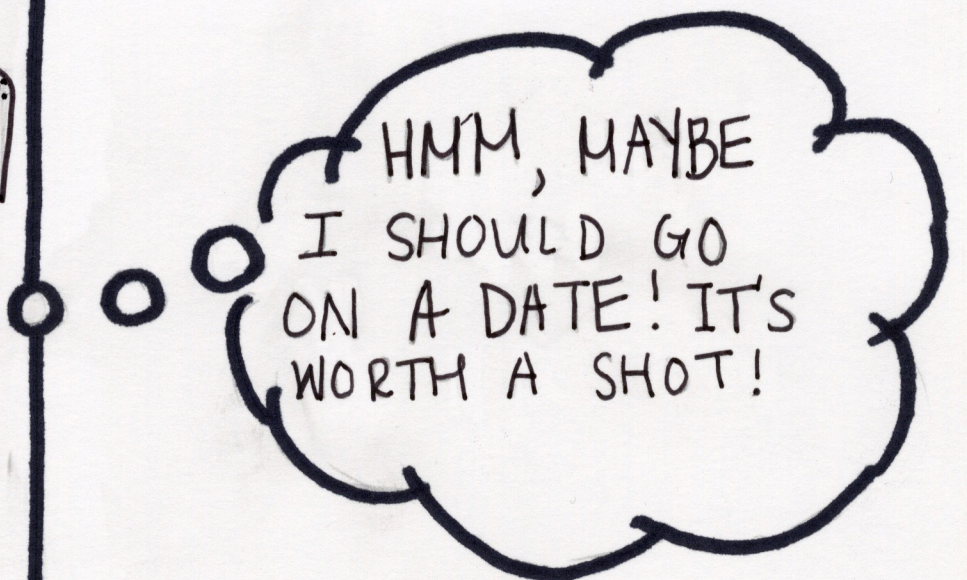 HMM, MAYBE
I SHOULD GO
ON A DATE! IT'S
WORTH A SHOT!